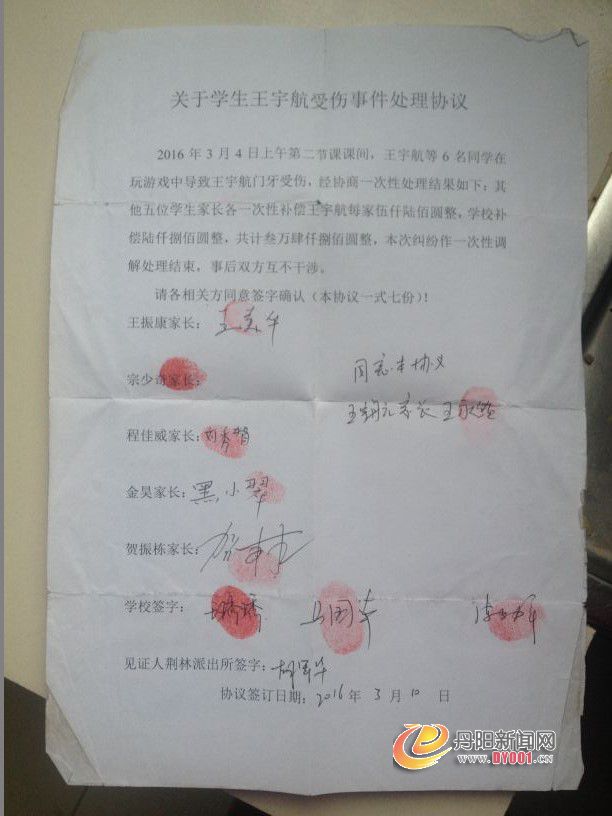 关于学生王宇航受伤事件处理协议
2016年3月4日上午第二节课课间，王宇航等6名同学在
玩游戏中导致王宇航门牙受伤，经协商一次性处理结果如下：其
他五位学生家长各一次性补偿王宇航每家伍仟陆佰圆整，学校补
偿陆仟捌佰圆整，共计叁万肆仟捌佰圆整，本次纠纷作一次性调
解处理结束，事后双方互不干涉。
请各相关方同意签字确认（本协议一式七份）！
王振康家长：
宗少奇家长：
同意本协议
家长王
程佳威家长：
金昊家长：黑小翠
贺振栋家长：
学校签字：
见证人荆林派出所签字：
协议签订日期：2016年3月10日
丹阳新闻网
WWW.DY001.CN